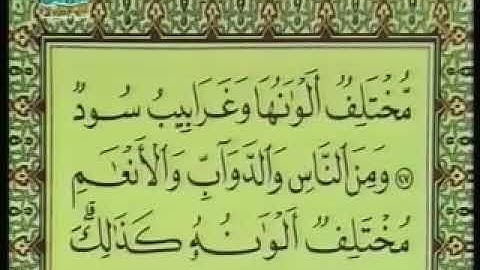 مُّخْتَلِفٌ أَلْوَٰنُهَا وَغَرَابِيبُ سُودٌ
٢٧ وَمِنَ النَّاسِ وَالدَّوَآبِّ وَالْأَنْعَٰمِ
مُخْتَلِفٌ أَلْوَٰنُهُۥ كَذَٰلِكَ ۗ